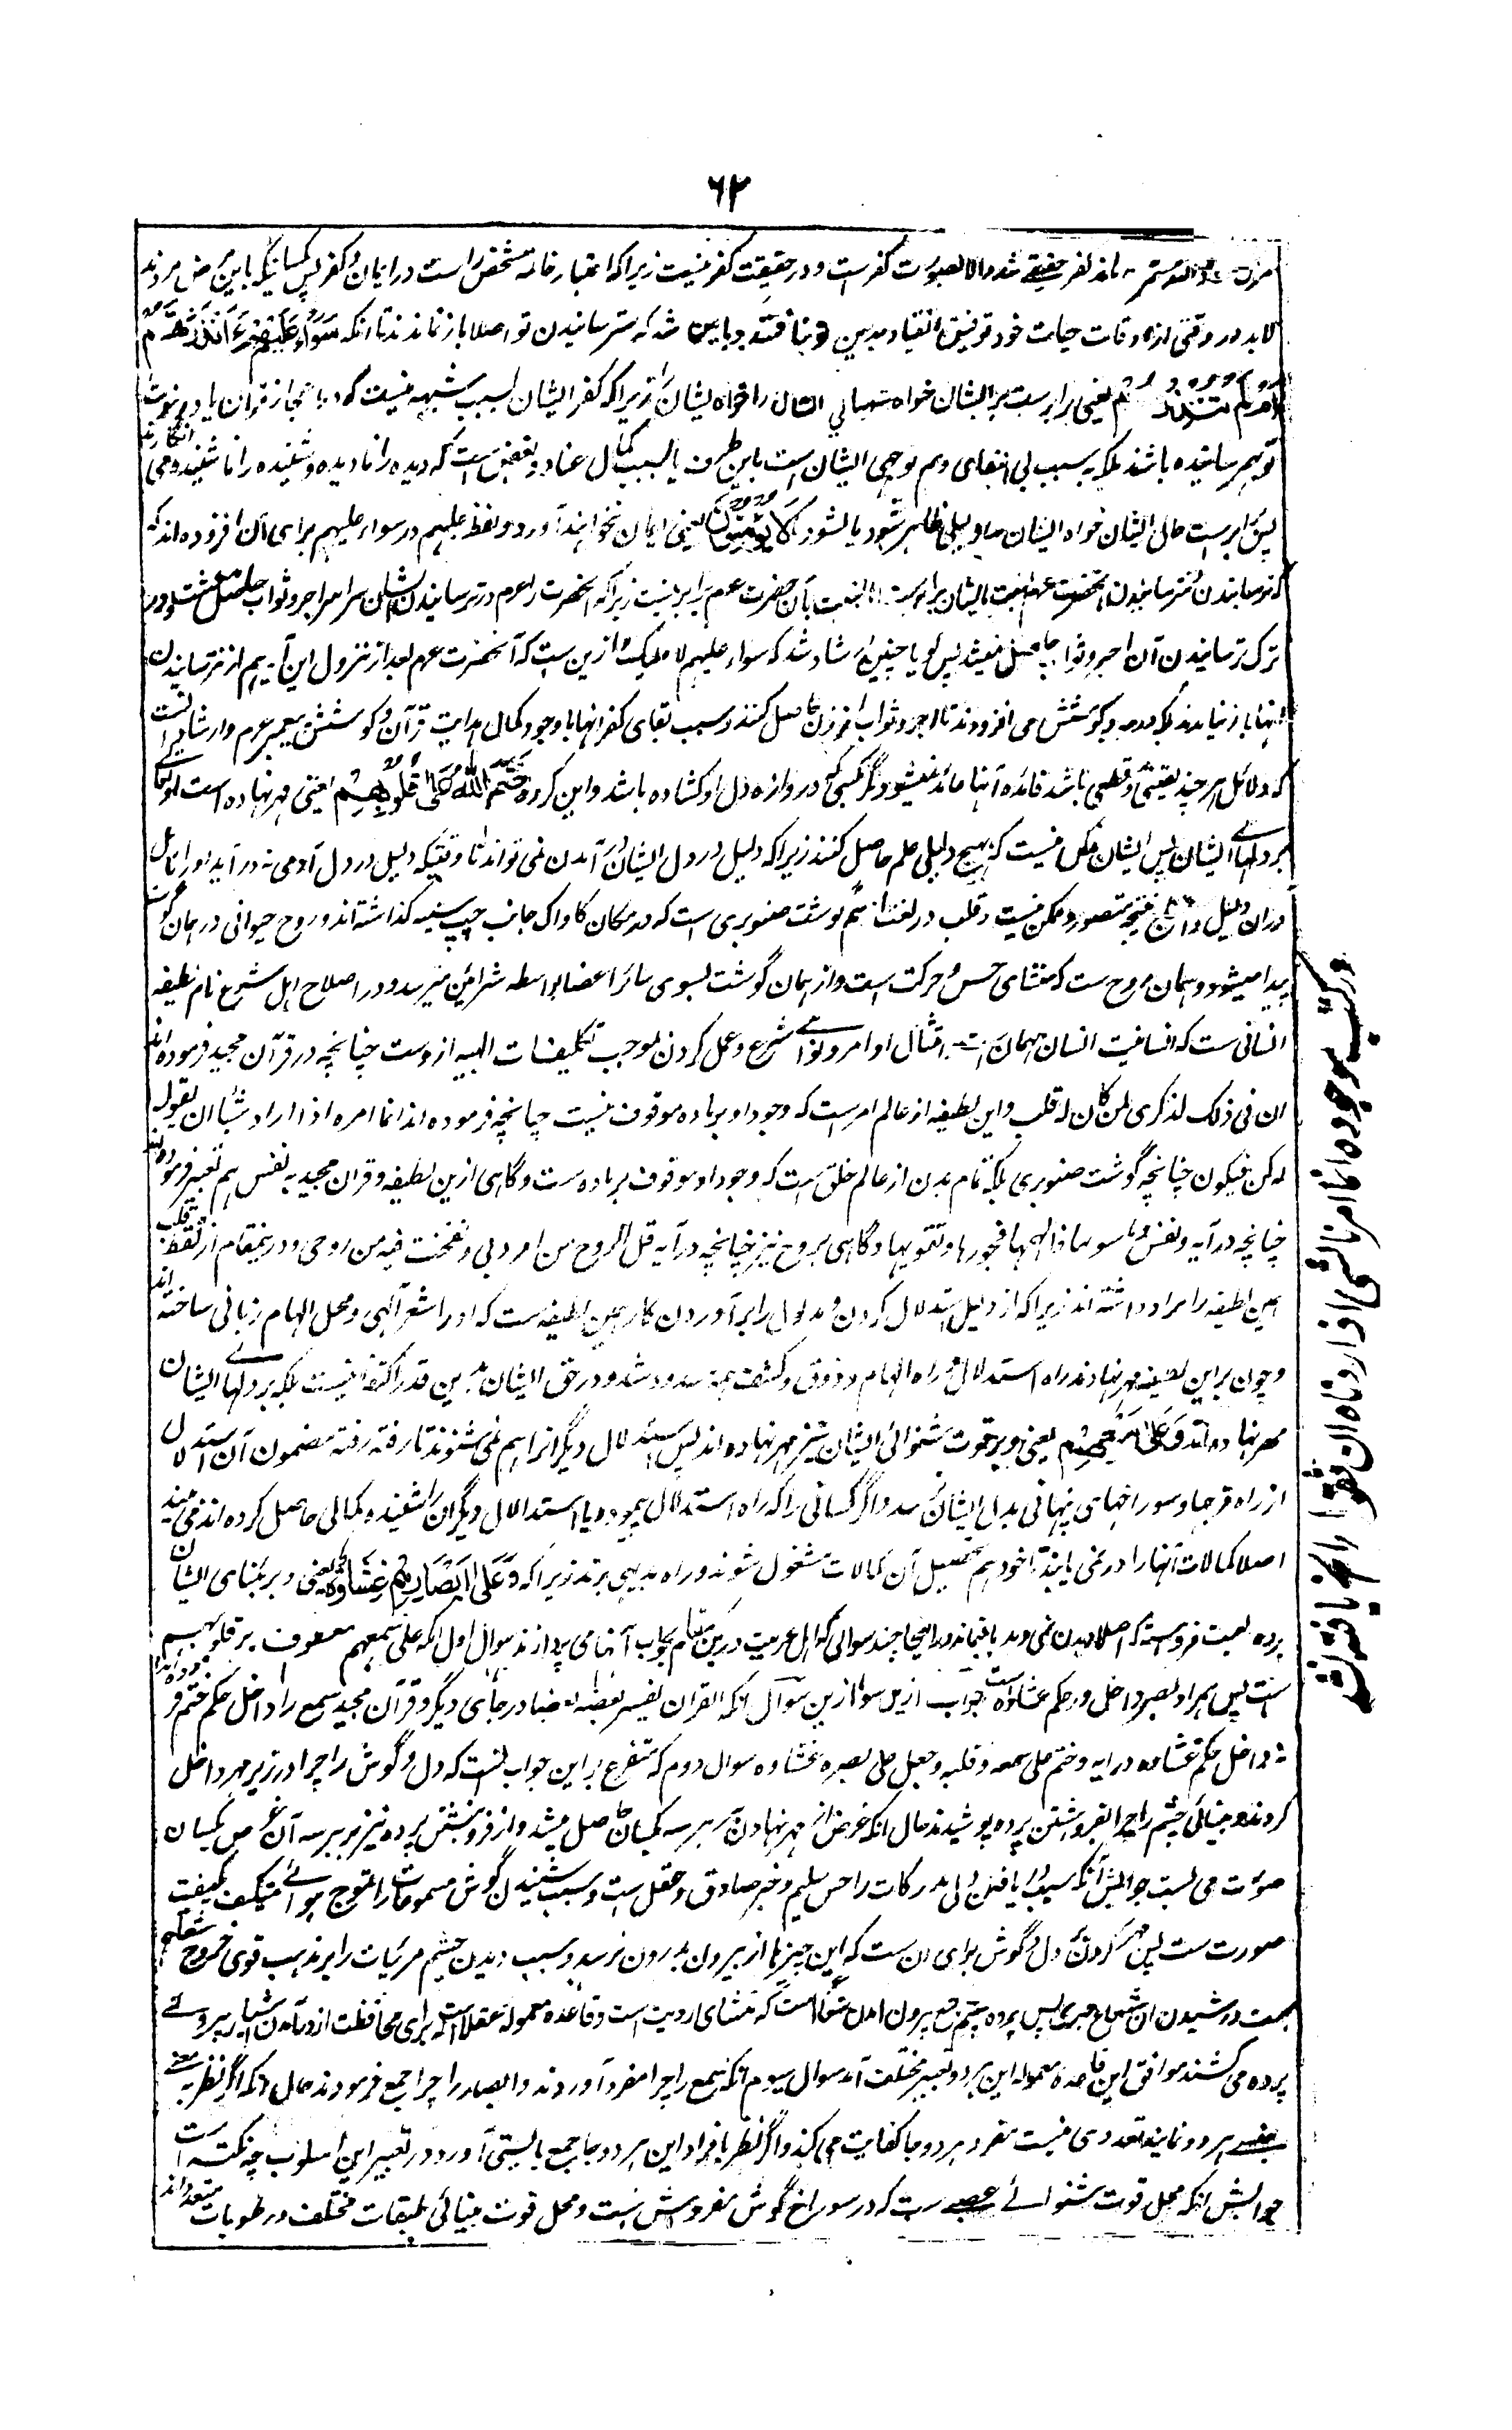 ۶۲
شد والا بصورت کفرست و در حقیقت کفر نیست زیراکه اعتبار خاتمه مشخص راست در ایمان و کفر پس کسانیکه باین مرض مردند
لابد در وقتی از اوقات حیات خود توفیق انقیاد بدین نیافتند که ترسانیدن تو اصلا باز نماندند تا آنکه سَوَاءٌ عَلَيْهِمْ ءَأَنْذَرْتَهُمْ
أَمْ لَمْ تُنْذِرْهُمْ یعنی برابرست بر ایشان خواه ترسانی ایشان را خواه زیراکه کفر ایشان بسبب شبهه نیست که در اعجاز قرآن یا در نبوت
تو بهم رسانیده باشند بلکه بسبب بی اعتنائی و بی توجهی ایشان است باین طرف یا بسبب کمال عناد و تعصب است که دیده را نادیده و شنیده را ناشنیده می انگارند
پس برابرست حال ایشان خواه ایشان را دلیلی ظاهر شود یا نشود لَا يُؤْمِنُونَ یعنی ایمان نخواهند آورد و لفظ علیهم در سواء علیهم برای آن افزوده اند که
ترسانیدن و نترسانیدن آنحضرت عم نسبت بایشان برابرست اما نسبت بآن حضرت عم برابر نیست زیراکه آنحضرت را عم در ترسانیدن ایشان سراسر اجر و ثواب حاصل میگشت و در
ترک ترسانیدن آن اجر و ثواب حاصل نمیشد پس گویا چنین ارشاد شد که سواء علیهم لا علیک و ازین است که آنحضرت عم بعد از نزول این آیه هم از ترسانیدن
اینها باز نیامدند بلکه در جد و کوشش می افزودند تا اجر و ثواب افزون حاصل کنند و سبب بقای کفر اینها با وجود کمال هدایت قرآن و کوشش پیغمبر عم و ارشاد اینست
که دلائل هر چند یقینی و قطعی باشد فائده آنها عائد نمیشود مگر بکسی که دروازه دل او کشاده باشد و این گروه خَتَمَ اللَّهُ عَلَى قُلُوبِهِمْ یعنی مهر نهاده است الله تعالی
بر دلهای ایشان پس ایشان را ممکن نیست که بهیچ دلیلی علم حاصل کنند زیراکه دلیل در دل ایشان در آمدن نمی تواند تا وقتیکه دلیل در دل آدمی نه درآید او را تامل
دران دلیل و استنتاج نتیجه متصور و ممکن نیست و قلب در لغت اسم گوشت صنوبری است که در مکان کاواک جانب چپ سینه گذاشته اند و روح حیوانی در همان گوشت
پیدا میشود و همان روح ست که منشای حس و حرکت است و از همان گوشت بسوی سائر اعضا بواسطه شرائین میرسد و در اصلاح اهل شرع نام لطیفه
انسانی ست که انسانیت انسان بهمان است و امتثال اوامر و نواهی شرع و عمل کردن بموجب تکلیفات الهیه ازوست چنانچه در قرآن مجید فرموده اند
ان فی ذلک لذکری لمن کان له قلب و این لطیفه از عالم امرست که وجود او بر ماده موقوف نیست چنانچه فرموده اند انما امره اذا اراد شیئا ان یقول
له کن فیکون چنانچه گوشت صنوبری بلکه تمام بدن از عالم خلق است که وجود او موقوف بر ماده ست و گاهی ازین لطیفه در قرآن مجید به نفس هم تعبیر فرموده اند
چنانچه در آیه و نفس و ما سوٰها فالهمها فجورها و تقوٰیها و گاهی بروح نیز چنانچه در آیه قل الروح من امر ربی و نفخت فیه من روحی و درینمقام از لفظ قلب
همین لطیفه را مراد داشته اند زیراکه از دلیل استدلال کردن و مدلول را برآوردن کار همین لطیفه ست که او را مشعر الهی و محل الهام ربانی ساخته اند
و چون بر این لطیفه مهر نهادند راه استدلال و راه الهام و ذوق و کشف همه مسدود شد و در حق ایشان برین قدر اکتفا نیست بلکه بر دلهای ایشان
مهر نهاده اند وَعَلَى سَمْعِهِمْ یعنی و بر قوت شنوائی ایشان نیز مهر نهاده اند پس استدلال دیگران را هم نمی شنوند تا رفته رفته مضمون آن استدلال
از راه فرجها و سوراخهای پنهانی بدل ایشان رسد و اگر کسانی را که راه استدلال پیموده یا استدلال دیگران را شنیده کمالی حاصل کرده اند می بینند
اصلا کمالات آنها را در نمی یابند تا خود هم بتحصیل آن کمالات مشغول شوند و راه بدیهی برند زیراکه وَعَلَى أَبْصَارِهِمْ غِشَاوَةٌ یعنی و بر بینائی ایشان
پرده ایست فروهشته که اصلا دیدن نمی دهد باقیماند در اینجا چند سوالی که اهل عربیت درین مقام بجواب آنها می پردازند سوال اول آنکه علی سمعهم معطوف بر قلوبهم
است پس همراه بصر داخل در حکم غشاوه است جواب ازین سوال آنکه القرآن یفسر بعضه بعضا در جای دیگر در قرآن مجید سمع را داخل حکم ختم فرموده اند
نه داخل حکم غشاوه در آیه و ختم علی سمعه و قلبه و جعل علی بصره غشاوه سوال دوم که متفرع بر این جواب است که دل و گوش را چرا در زیر مهر داخل
کردند و بینائی چشم را چرا بفروهشتن پرده پوشیدند حال آنکه غرض از مهر نهادن بر هر سه یکسان حاصل میشد و از فروهشتن پرده نیز بر هر سه آن غرض یکسان
صورت می بست جوابش آنکه سبب دریافتن دل مدرکات را حس سلیم و خبر صادق و عقل ست و سبب شنیدن گوش مسموعات را تموج هوای متکیف بکیفیت
صورت ست پس مهر کردن دل و گوش برای آن ست که این چیزها از بیرون بدرون نرسد و سبب دیدن چشم مرئیات را بر مذهب قوی خروج شعاع
پرده می کشند موافق این قاعده معموله این هر دو تعبیر مختلف آمد سوال سوم آنکه سمع را چرا مفرد آوردند و ابصار را چرا جمع فرمودند حال آنکه اگر نظر بمعنی
جنسی هر دو نمایند تعددی نیست مفرد هر دو جا کفایت می کند و اگر نظر بافراد این هر دو جا جمع بایستی آورد در تعبیر این اسلوب چه نکته است
جوابش آنکه محل قوت شنوائی عصبی ست که در سوراخ گوش مفروش است و محل قوت بینائی طبقات مختلف و رطوبات متعدد اند